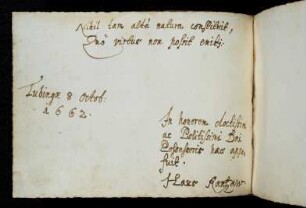 Nihil tam alta natura constituit,
Quo virtus non possit eniti.
Tubingæ 8 Octob:
1662.
In honorem doctissimi
ac Politissimi Dni
hæc appo-
suit
Rantzow